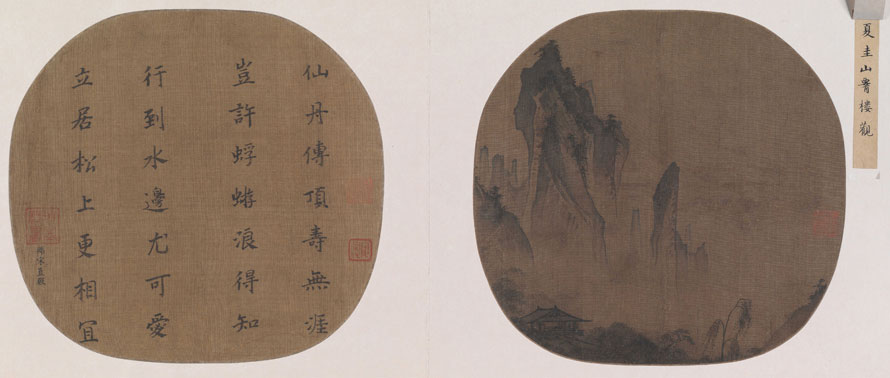 夏圭山樓觀
仙丹傳頂壽無涯
豈許蜉蝣浪得知
行到水邊尤可愛
立居松上更相冝